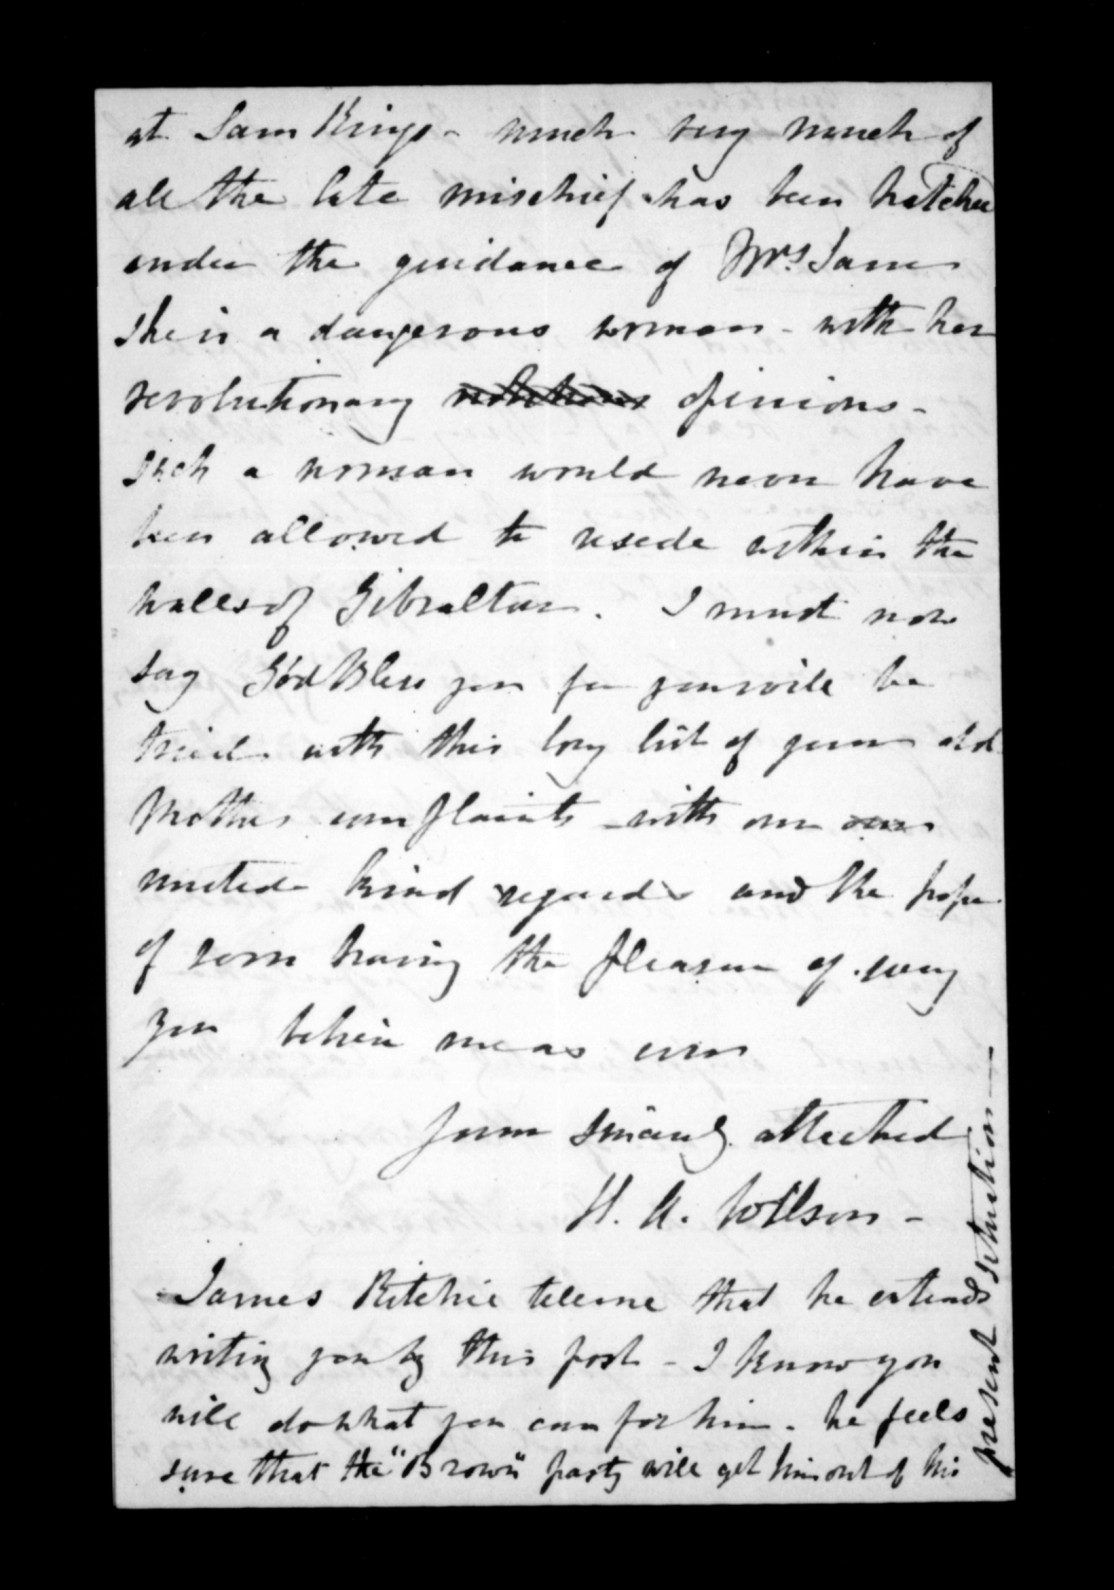 at Sam Kings - much very much of
all the late mischief has been hatched
under the guidance of Mrs. Sam
she is a dangerous woman - with her
revolutionary opinions -
such a woman would never have
been allowed to reside within the
walls of Gibraltar. I must now
say God Bless you for you will be
tried with this long list of your old
Mothers complaints - with our
united kind regards and the hope
of soon having the pleasure of seeing
you believe me as ever
Yours sincerely attached
H. A. Wilson -
James Ritchie tells me that he intends
writing you by this post - I know you
will do what you can for him - he feels
sure that the "Brown" party will get him out of his
present situation -